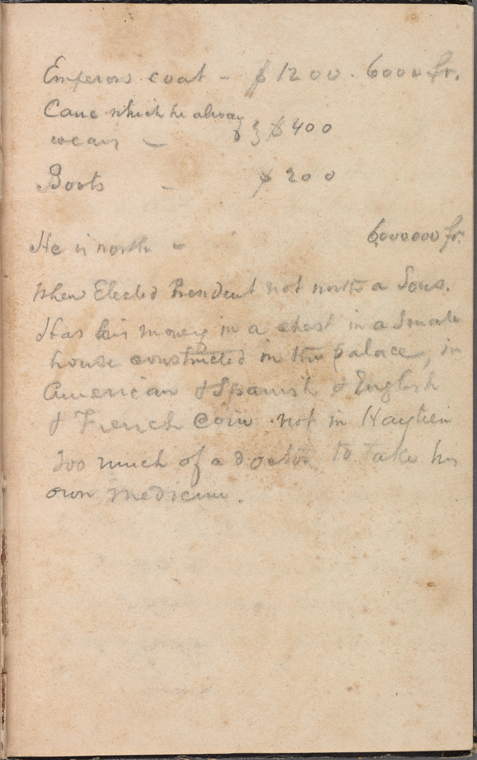 Emperors coat - $1200. 6000 fr.
Cane which he always
wears - $400
Boots - $200
He is worth - 6,000000 fr.
When Elected President not worth a Sous.
Has his money in a chest in a small
house constructed in the palace, in
American & Spanish & English
& French Coin not in Haytien
Too much of a doctor to take his
own medicine.